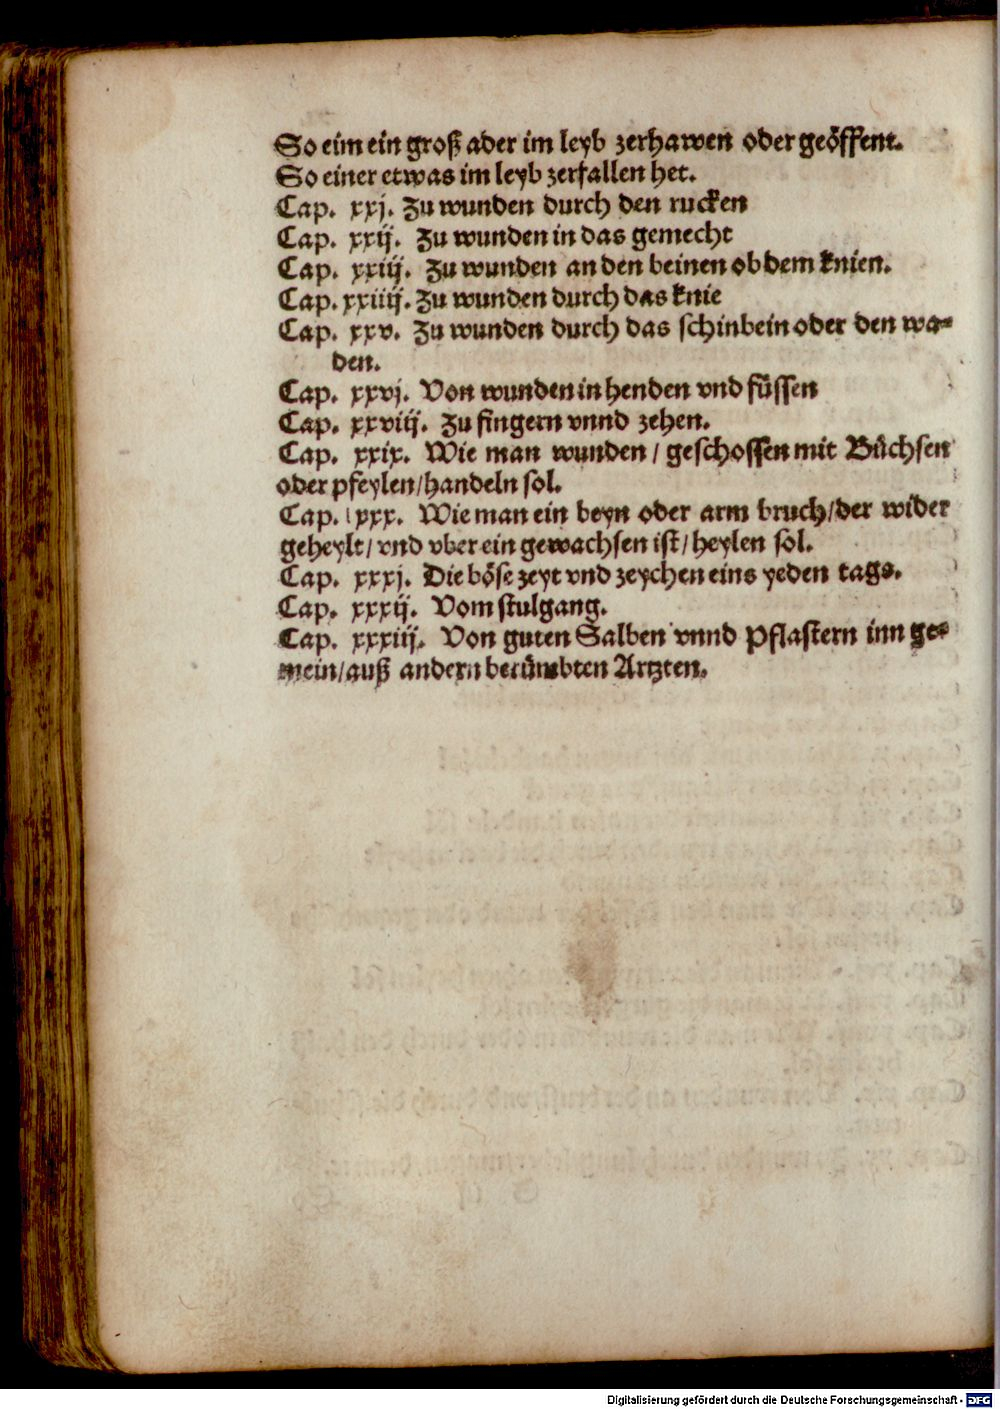 So eim ein groß ader im leyb zerhawen oder geöffent.
So einer etwas im leyb zerfallen het.
Cap. xxj. Zu wunden durch den rucken
Cap. xxij. Zu wunden in das gemecht
Cap. xxiij. Zu wunden an den beinen ob dem knien.
Cap. xxiiij. Zu wunden durch das knie
Cap. xxv. Zu wunden durch das schinbein oder den wa-
den.
Cap. xxvj. Von wunden in henden vnd füssen
Cap. xxviij. Zu fingern vnnd zehen.
Cap. xxix. Wie man wunden / geschossen mit Büchsen
oder pfeylen/handeln sol.
Cap. xxx. Wie man ein beyn oder arm bruch/der wider
geheylt/ vnd vber ein gewachsen ist/ heylen sol.
Cap. xxxj. Die böse zeyt vnd zeychen eins yeden tags.
Cap. xxxij. Vom stulgang.
Cap. xxxiij. Von guten Salben vnnd Pflastern inn ge-
mein/auß andern berümbten Artzten.
Digitalisierung gefördert durch die Deutsche Forschungsgemeinschaft - DFG